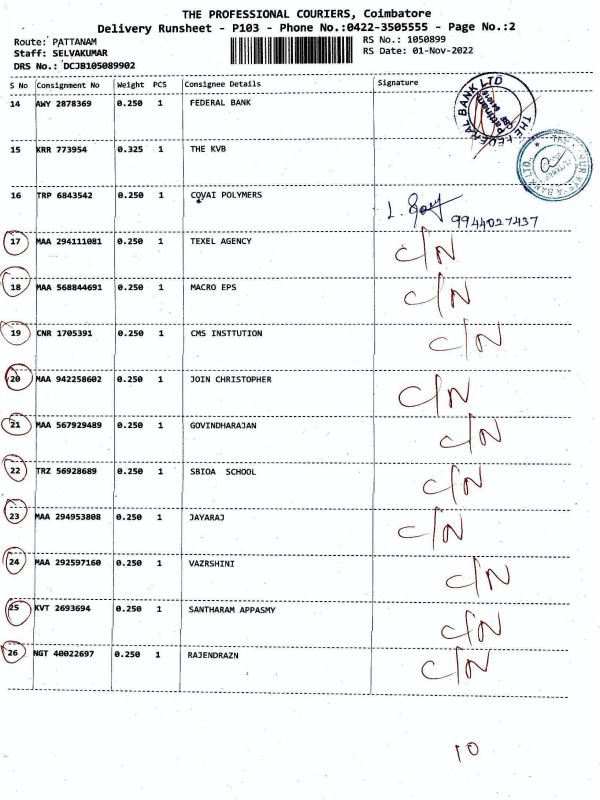 THE PROFESSIONAL COURIERS, Coimbatore
Delivery Runsheet - P103 - Phone No.:0422-3505555 - Page No.:2
Route: PATTANAM
RS No.: 1050899
Staff: SELVAKUMAR
RS Date: 01-Nov-2022
DRS No.: DCJB105089902
S No Consignment No Weight PCS Consignee Details Signature
14 AWY 2878369 0.250 1 FEDERAL BANK
THE FEDERAL BANK LTD
Pattnam
15 KRR 773954 0.325 1 THE KVB
16 TRP 6843542 0.250 1 COVAI POLYMERS
9944027437
17 MAA 294111081 0.250 1 TEXEL AGENCY C/N
18 MAA 568844691 0.250 1 MACRO EPS C/N
19 CNR 1705391 0.250 1 CMS INSTTUTION C/N
20 MAA 942258602 0.250 1 JOIN CHRISTOPHER C/N
21 MAA 567929489 0.250 1 GOVINDHARAJAN C/N
22 TRZ 56928689 0.250 1 SBIOA SCHOOL C/N
23 MAA 294953808 0.250 1 JAYARAJ C/N
24 MAA 292597160 0.250 1 VAZRSHINI C/N
25 KVT 2693694 0.250 1 SANTHARAM APPASMY C/N
26 NGT 40022697 0.250 1 RAJENDRAZN C/N
10